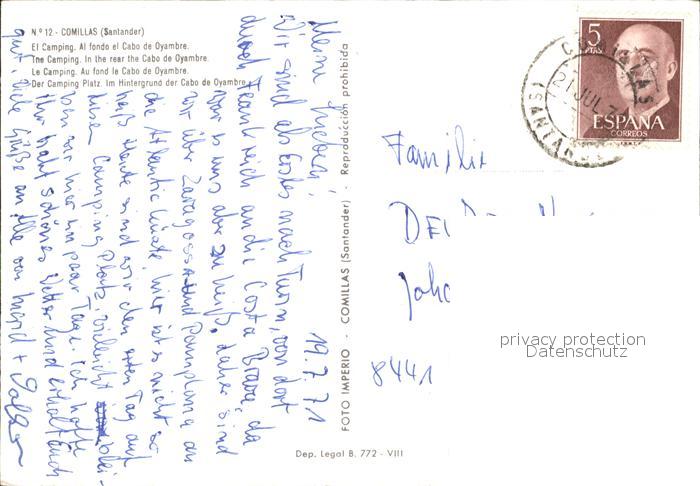 Nº 12 - COMILLAS (Santander)
El Camping. Al fondo el Cabo de Oyambre.
The Camping. In the rear the Cabo de Oyambre.
Le Camping. Au fond le Cabo de Oyambre.
Der Camping Platz. Im Hintergrund der Cabo de Oyambre.
19.7.71
Meine Lieben!
Wir sind als Erstes nach Turin, von dort
durch Frankreich an die Costa Brava, da
war es uns aber zu heiß, daher sind
wir über Zaragossa und Pamplona an
die Atlantikküste, hier ist es nicht so
heiß. Heute sind wir den ersten Tag auf
diesem Campingplatz, vielleicht blei-
ben wir hier ein paar Tage. Ich hoffe
Ihr habt schönes Wetter und erholt Euch
gut. Viele Grüße an Alle von Ingrid +
FOTO IMPERIO - COMILLAS (Santander) - Reproducción prohibida
Dep. Legal B. 772 - VIII
5
PTAS
ESPAÑA
CORREOS
COMILLAS
21 JUL. 7
(SANTANDER)
Familie
Joh
8441
privacy protection
Datenschutz